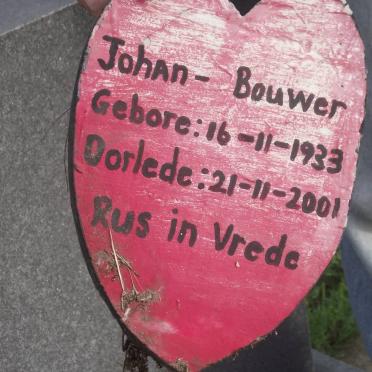 Johan - Bouwer
Gebore: 16-11-1933
Dorlede: 21-11-2001
Rus in Vrede